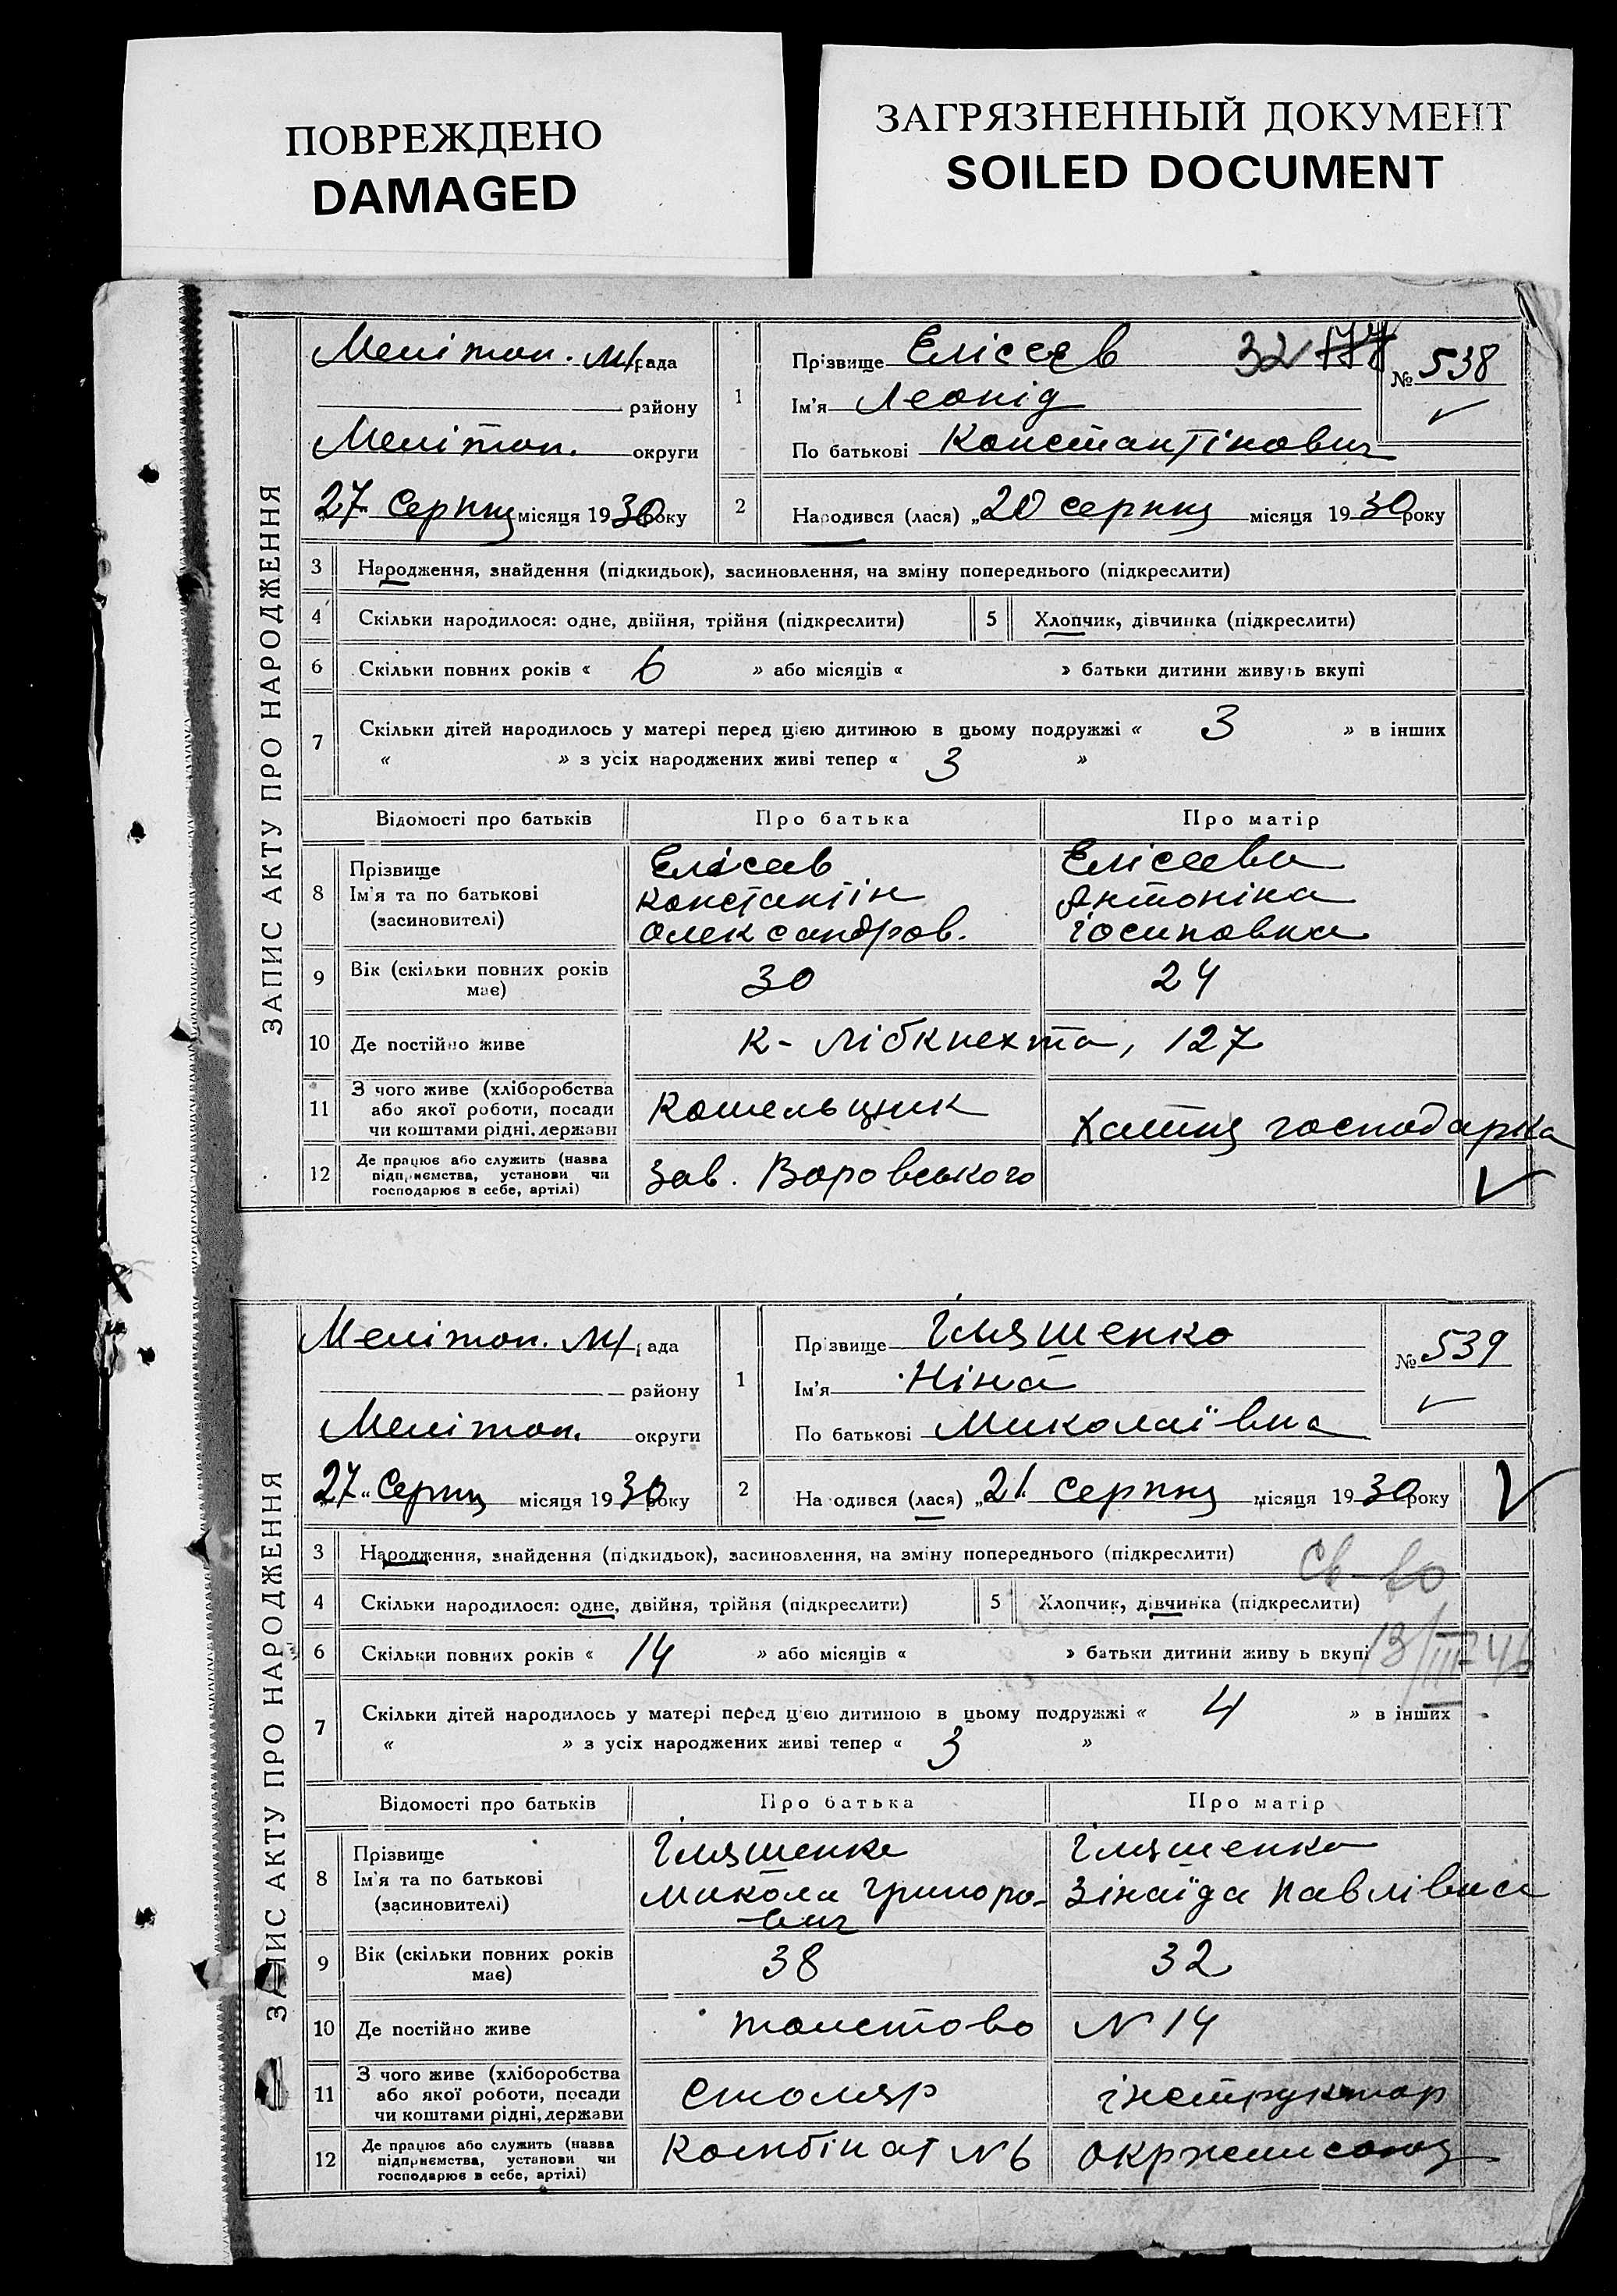 ПОВРЕЖДЕНО
DAMAGED
ЗАГРЯЗНЕННЫЙ ДОКУМЕНТ
SOILED DOCUMENT
ЗАПИС АКТУ ПРО НАРОДЖЕННЯ
Мелітоп. М/рада
району
Мелітоп. округи
27 Серпня місяця 1930 року
1
Прізвище Елісеєв 32
Ім'я Леонід
По батькові Константінович
№ 538
2
Народився (лася) „20 серпня місяця 1930 року
3 Народження, знайдення (підкидьок), засиновлення, на зміну попереднього (підкреслити)
4 Скільки народилося: одне, двійня, трійня (підкреслити) 5 Хлопчик, дівчинка (підкреслити)
6 Скільки повних років « 6 » або місяців « » батьки дитини живуть вкупі
7 Скільки дітей народилось у матері перед цією дитиною в цьому подружжі « 3 » в інших
« » з усіх народжених живі тепер « 3 »
Відомості про батьків Про батька Про матір
8 Прізвище Елісеєв Елісеева
Ім'я та по батькові Константін Антоніна
(засиновителі) Олександров. Іосиповна
9 Вік (скільки повних років має) 30 24
10 Де постійно живе К- Лібкнехта, 127
11 З чого живе (хліборобства або якої роботи, посади чи коштами рідні, держави Котельщик Хатня господарка
12 Де працює або служить (назва підприємства, установи чи господарює в себе, артілі) Зав. Воровського
ЗАПИС АКТУ ПРО НАРОДЖЕННЯ
Мелітоп. М/рада
району
Мелітоп. округи
27 „ Серпня місяця 1930 року
1
Прізвище Ілляшенко
Ім'я Ніна
По батькові Миколаївна
№ 539
2
На одився (лася) „21 серпня місяця 1930 року
3 Народження, знайдення (підкидьок), засиновлення, на зміну попереднього (підкреслити)
Св-во
4 Скільки народилося: одне, двійня, трійня (підкреслити) 5 Хлопчик, дівчинка (підкреслити)
6 Скільки повних років « 14 » або місяців « » батьки дитини живу ь вкупі
13/III 46
7 Скільки дітей народилось у матері перед цією дитиною в цьому подружжі « 4 » в інших
« » з усіх народжених живі тепер « 3 »
Відомості про батьків Про батька Про матір
8 Прізвище Ілляшенко Ілляшенко
Ім'я та по батькові Микола Григоро- Зінаїда Павлівна
(засиновителі) -вич
9 Вік (скільки повних років має) 38 32
10 Де постійно живе Толстово N 14
11 З чого живе (хліборобства або якої роботи, посади чи коштами рідні, держави Столяр інструктор
12 Де працює або служить (назва підприємства, установи чи господарює в себе, артілі) Комбінат N 6